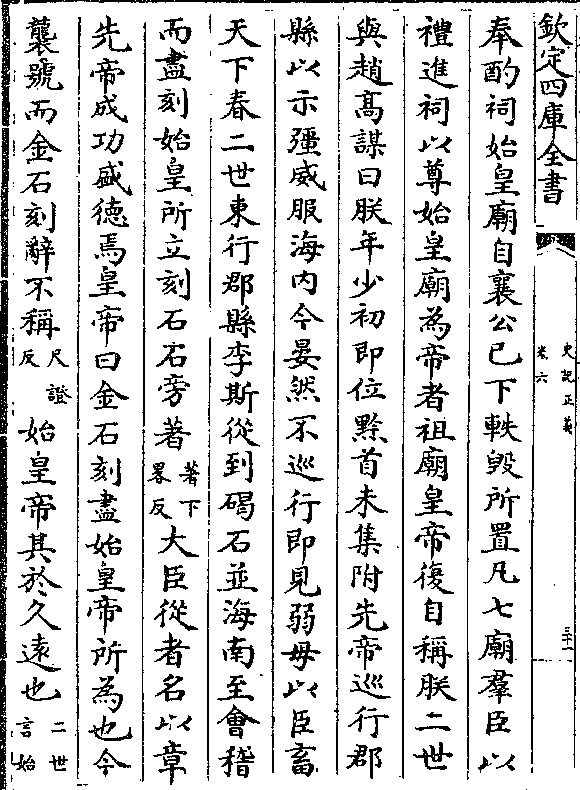 欽定四庫全書
史記正義
卷六
三十一
奉酌祠始皇廟自襄公已下軼毀所置凡七廟羣臣以
禮進祠以尊始皇廟為帝者祖廟皇帝復自稱朕二世
與趙髙謀曰朕年少初即位黔首未集附先帝巡行郡
縣以示彊威服海内今晏然不巡行即見弱毋以臣畜
天下春二世東行郡縣李斯從到碣石並海南至會稽
而盡刻始皇所立刻石石旁著著下畧反大臣從者名以章
先帝成功盛德焉皇帝曰金石刻盡始皇帝所為也今
襲號而金石刻辭不稱尺證反始皇帝其於久逺也二世言始